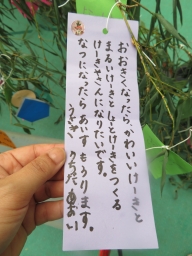 おおきくなったら、かわいいけーきと
まるいけーきとしょーとけーきをつくる
けーきやさんになりたいです。
なつになったらあいすもうります。
うちだ